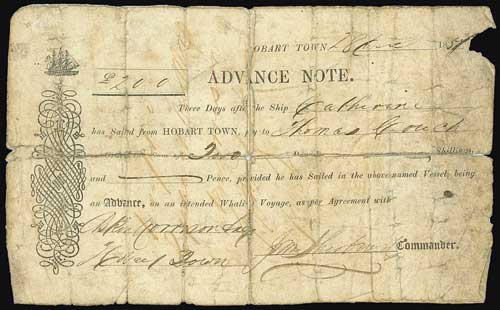 HOBART TOWN, 28
£2 0 0
ADVANCE NOTE.
Three Days after the Ship Catherine
has Sailed from HOBART TOWN, pay to Thomas Couch
Two Shillings
and Pence, provided he has Sailed in the above-named Vessel, being
an Advance, on an intended Whaling Voyage, as per Agreement with
Hobart Town Commander.